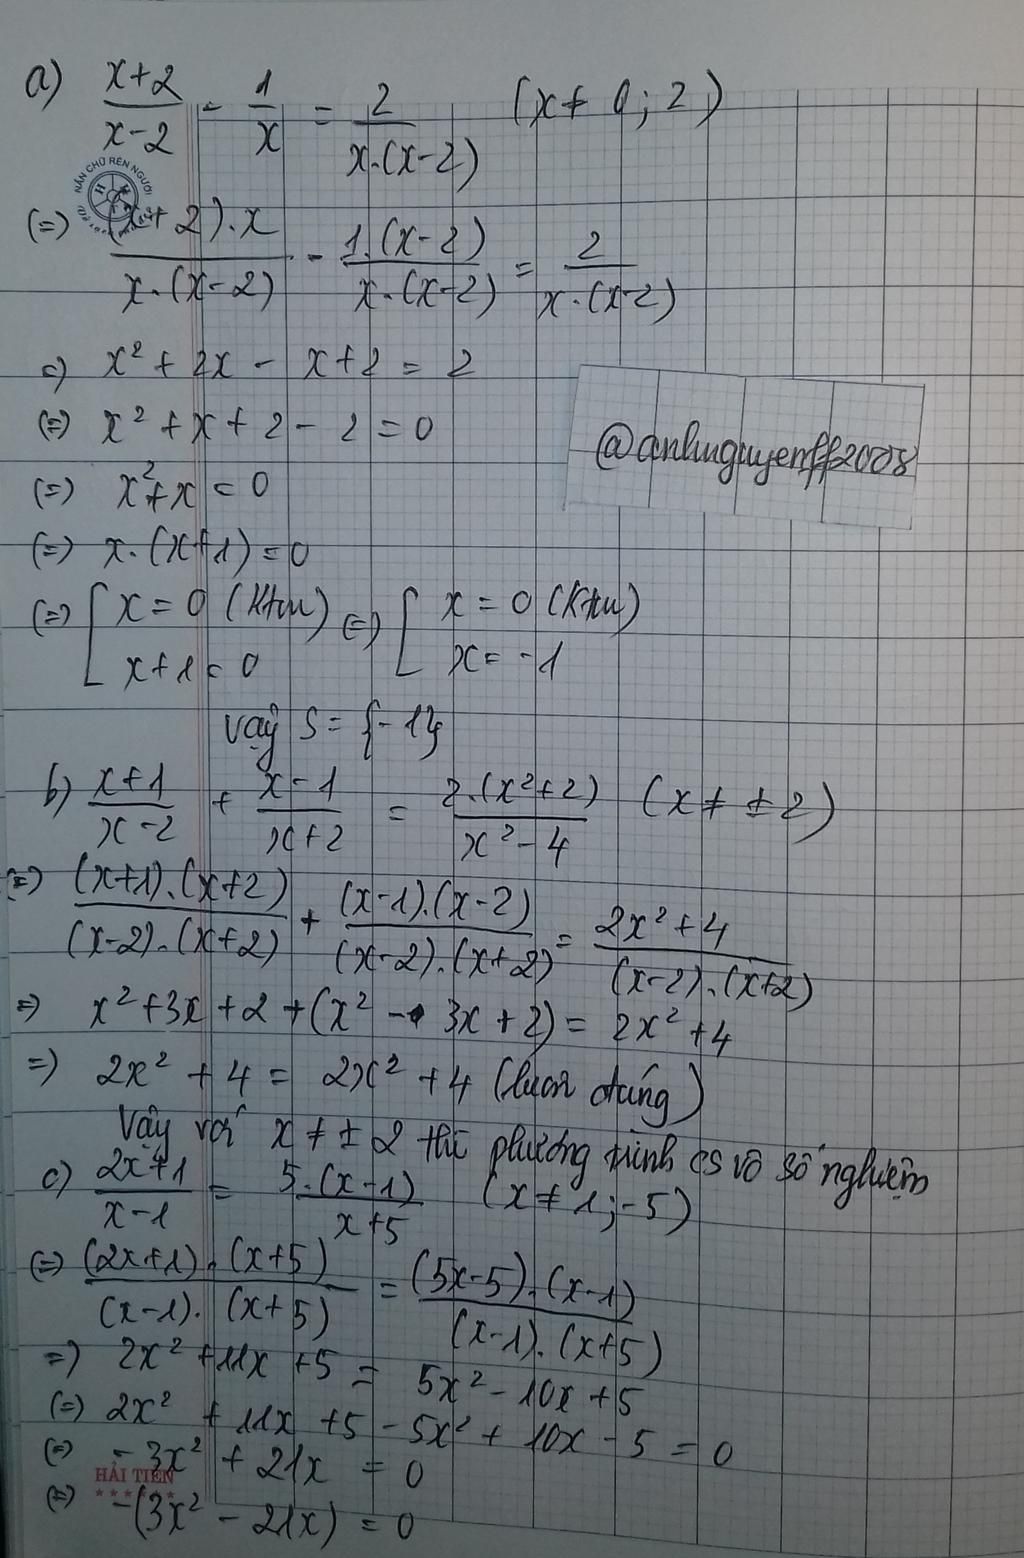 a) (x+2)/(x-2) - 1/x = 2/(x.(x-2)) (x ≠ 0; 2)
NẮN CHỮ RÈN NGƯỜI
(=) ((x+2).x)/(x.(x-2)) - (1.(x-2))/(x.(x-2)) = 2/(x.(x-2))
=) x² + 2x - x + 2 = 2
(=) x² + x + 2 - 2 = 0
@anhnguyenff2008
(=) x² + x = 0
(=) x.(x+1) = 0
(=) [ x = 0 (Ktm) (=) [ x = 0 (Ktm)
x+1 = 0 x = -1
Vậy S = {-1}
b) (x+1)/(x-2) + (x-1)/(x+2) = (2.(x²+2))/(x²-4) (x ≠ ±2)
(=) ((x+1).(x+2))/((x-2).(x+2)) + ((x-1).(x-2))/((x-2).(x+2)) = (2x²+4)/((x-2).(x+2))
=) x² + 3x + 2 + (x² - 3x + 2) = 2x² + 4
=) 2x² + 4 = 2x² + 4 (luôn đúng)
Vậy với x ≠ ±2 thì phương trình có vô số nghiệm
c) (2x+1)/(x-1) = (5.(x-1))/(x+5) (x ≠ 1; -5)
(=) ((2x+1).(x+5))/((x-1).(x+5)) = ((5x-5).(x-1))/((x-1).(x+5))
=) 2x² + 11x + 5 = 5x² - 10x + 5
(=) 2x² + 11x + 5 - 5x² + 10x - 5 = 0
(=) -3x² + 21x = 0
HẢI TIẾN
(=) -(3x² - 21x) = 0